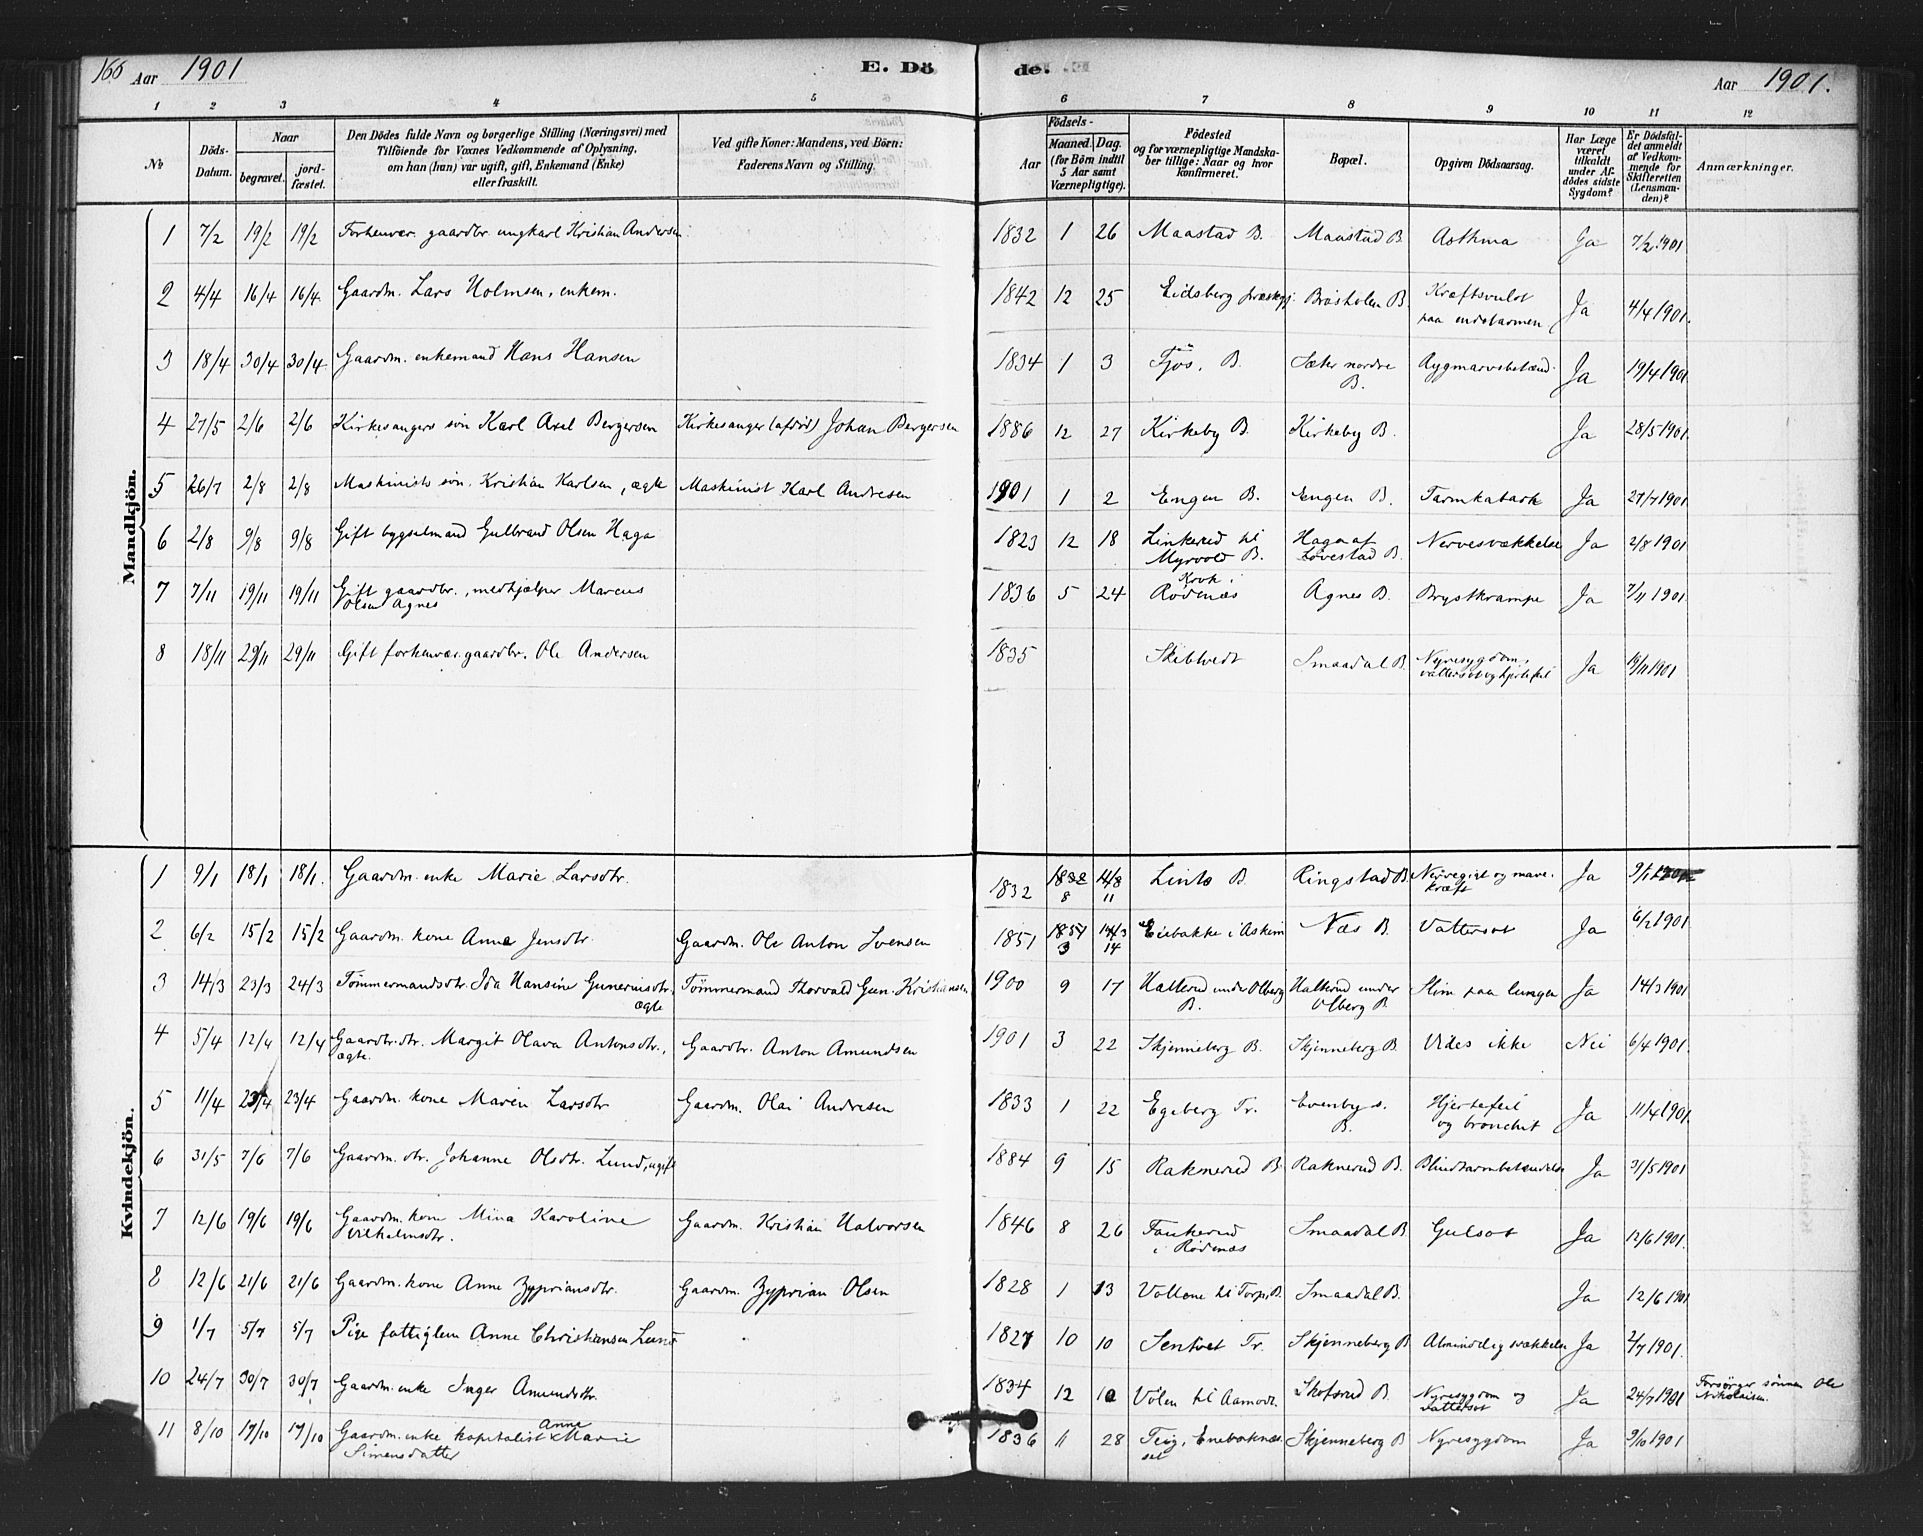 166 Aar 1901 E. Dö de. Aar 1901.
1 2 3 4 5 6 7 8 9 10 11 12
No
Döds-Datum.
Naar
begravet.
jordfæstet.
Den Dödes fulde Navn og borgerlige Stilling (Næringsvei) med
Tilföiende for Voxnes Vedkommende af Oplysning,
om han (hun) var ugift, gift, Enkemand (Enke)
eller fraskilt.
Ved gifte Koner: Mandens, ved Börn:
Faderens Navn og Stilling.
Födsels-
Aar
Maaned. Dag.
(for Börn indtil
5 Aar samt
Værnepligtige).
Födested
og for værnepligtige Mandskaber tillige: Naar og hvor
konfirmeret.
Bopæl.
Opgiven Dödsaarsag.
Har Læge
været
tilkaldt
under Afdödes sidste
Sygdom?
Er Dödsfaldet anmeldt
af Vedkommende for
Skifteretten
(Lensmanden)?
Anmærkninger.
Mandkjön.
1 7/2 19/2 19/2 Forhenvær. gaardbr. ungkarl Kristian Andersen 1832 1 26 Maastad B. Maastad B. Asthma Ja 7/2 1901
2 4/4 16/4 16/4 Gaardm. Lars Holmsen, enkem. 1842 12 25 Eidsberg præstegj. Bråsholen B. Kræftsvulst
paa endetarmen Ja 4/4 1901.
3 18/4 30/4 30/4 Gaardm. enkemand Hans Hansen 1834 1 3 Fjös, B. Sæter nordre
B. Rygmarvsbetænd. Ja 19/4 1901.
4 27/5 2/6 2/6 Kirkesangers søn Karl Axel Bergersen Kirkesanger (afdød) Johan Bergersen 1886 12 27 Kirkeby B. Kirkeby B. Ja 28/5 1901.
5 26/7 2/8 2/8 Maskinists søn. Kristian Karlsen, ægte Maskinist Karl Andresen 1901 1 2 Engen B. Engen B. Tarmkatarh Ja 27/7 1901
6 2/8 9/8 9/8 Gift bygselmand Gulbrand Olsen Haga 1823 12 18 Linkerud til
Myrvold B. Haga af
Løvestad B. Nervesvækkelse Ja 2/8 1901
7 7/11 19/11 19/11 Gift gaardbr., medhjælper Marcus
Olsen Agnes 1836 5 24 Krok i
Rødenæs Agnes B. Brystkrampe Ja 7/11 1901.
8 18/11 29/11 29/11 Gift forhenvær. gaardbr. Ole Andersen 1835 Skibtvedt Smaadal B. Nyresygdom,
vattersot og hjertefeil Ja 19/11 1901
Kvindekjön.
1 9/1 18/1 18/1. Gaardm. enke Marie Larsdtr. 1832 8 11 Linto B. Ringstad B. Nervegigt og mavekræft Ja 9/1
2 6/2 15/2 15/2 Gaardm. kone Anne Jensdtr. Gaardm. Ole Anton Svensen 1851 3 14 Eidbakke i Askim Næs B. Vattersot Ja 6/2 1901
3 14/3 23/3 24/3 Tømmermandsdtr. Ida Hansine Guneriusdtr.
ægte Tømmermand Thorvald Gun. Kristiansen 1900 9 17 Halterud under Olberg
B. Halterud under
Olberg B. Slim paa lungen Ja 14/3 1901
4 5/4 12/4 12/4 Gaardbr. dtr. Margit Olava Antonsdtr.,
ægte. Gaardbr. Anton Amundsen 1901 3 22 Skjenneberg B. Skjenneberg B. Vides ikke Nei 6/4 1901.
5 11/4 23/4 23/4 Gaardm. kone Maren Larsdtr Gaardm. Olai Andresen 1833 1 22 Egeberg Tr. Evenby s.
B. Hjertefeil
og bronchit Ja 11/4 1901.
6 31/5 7/6 7/6 Gaardm. dtr. Johanne Olsdtr. Lund, ugift 1884 9 15 Raknerud B Raknerud B. Blindtarmbetændelse Ja 31/5 1901
7 12/6 19/6 19/6 Gaardm. kone Mina Karoline
Vilhelmsdtr. Gaardm. Kristian Halvorsen 1846 8 26 Faukerud
i Rødenæs Smaadal B Gulsot Ja 12/6 1901.
8 12/6 21/6 21/6 Gaardm. kone Anne Zyprian<s>dtr. Gaardm. Zyprian Olsen 1828 1 13 Vollene til Torp, B. Smaadal B. Ja 12/6 1901
9 1/7 5/7 5/7 Pige fattiglem Anne Christiansen Lund 1827 10 10 Sentvet Tr. Skjenneberg B Almindelig svækkelse Ja 2/7 1901.
10 24/7 30/7 30/7 Gaardm. enke Inger Amundsdtr. 1834 12 10 Volen til Aamodt Skofsrud B. Nyresygdom og
vattersot Ja 24/7 1901 Forsørger sønnen Ole
Nikolaisen.
11 8/10 17/10 17/10 Gaardm. enke kapitalist Anne Marie
Simensdatter 1836 11 28 Teig, Enebaknessel Skjenneberg B Nyresygdom Ja 9/10 1901